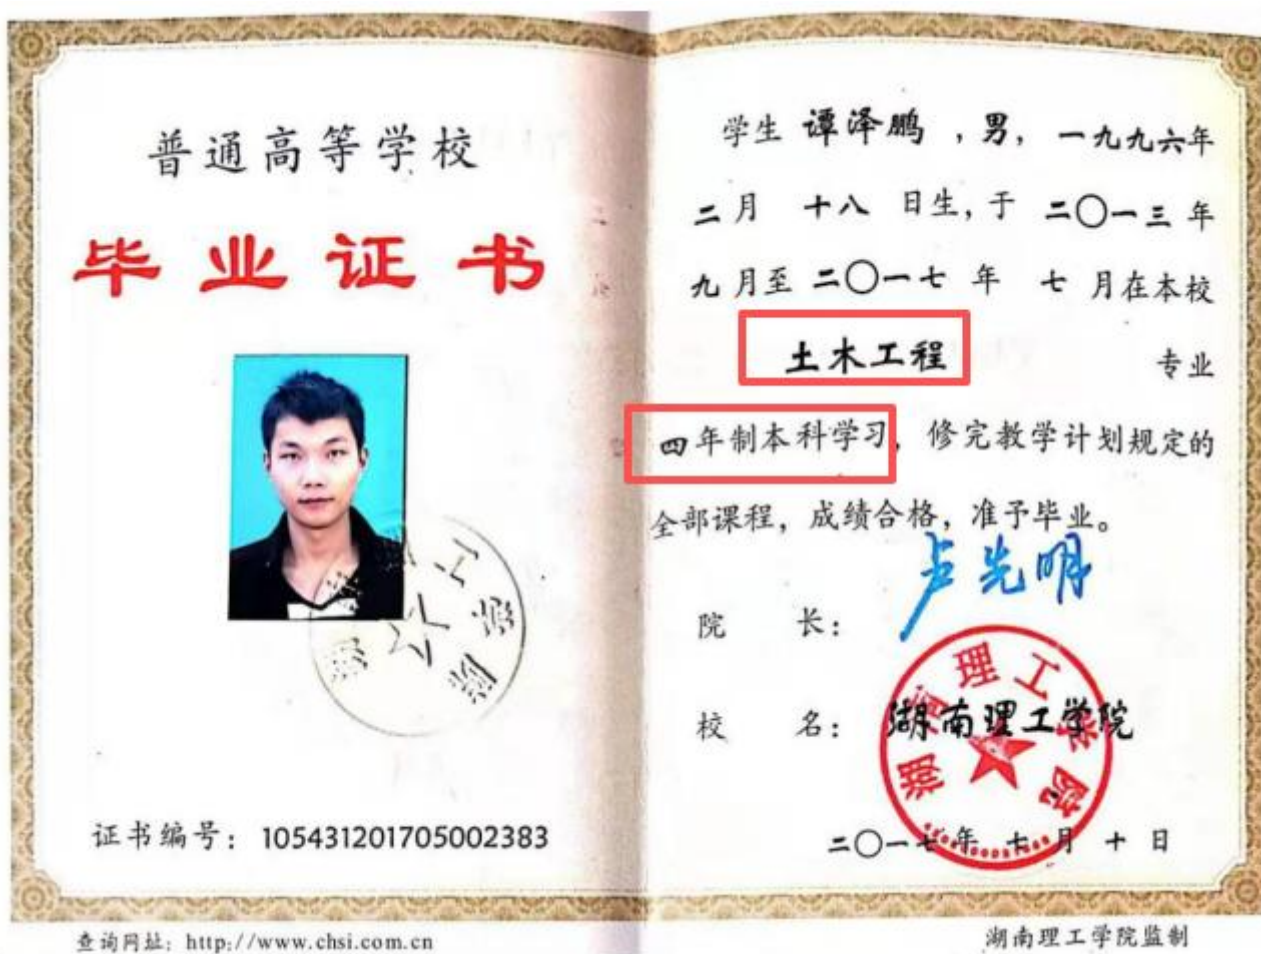 普通高等学校
毕业证书
证书编号：105431201705002383
查询网址：http://www.chsi.com.cn
学生 谭泽鹏，男，一九九六年
二月 十八 日生，于 二〇一三年
九月至二〇一七年 七月在本校
土木工程 专业
四年制本科学习，修完教学计划规定的
全部课程，成绩合格，准予毕业。
院 长：卢先明
校 名：湖南理工学院
湖南理工学院
二〇一七年 七月 十日
湖南理工学院监制